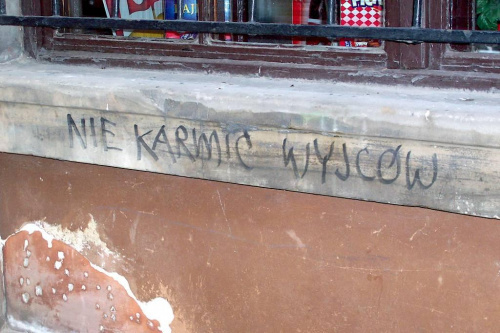 NIE KARMIĆ WYJCÓW